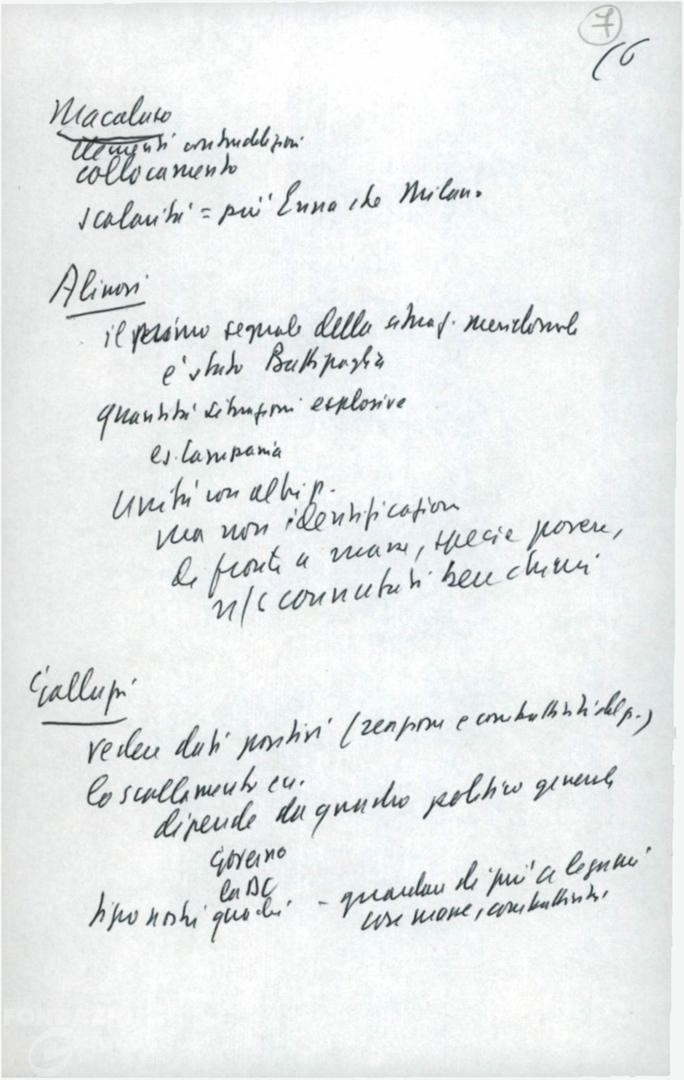 7
16
Macaluso
elementi contraddizioni
collocamento
scolarità = più Enna che Milano
Alinovi
il primo segnale della situaz. meridionale
è stato Battipaglia
quantità situazioni esplosive
es. Campania
Unità con altri p.
ma non identificazione
di fronte a masse, specie povere,
n/c connotati ben chiari
Galluzzi
vedere dati positivi (reazione e combattività del p.)
lo scollamento
dipende da quadro politico generale
Governo
la DC
tipo nostri quadri - guardare di più a legami
con masse, combattività
FONDAZIONE